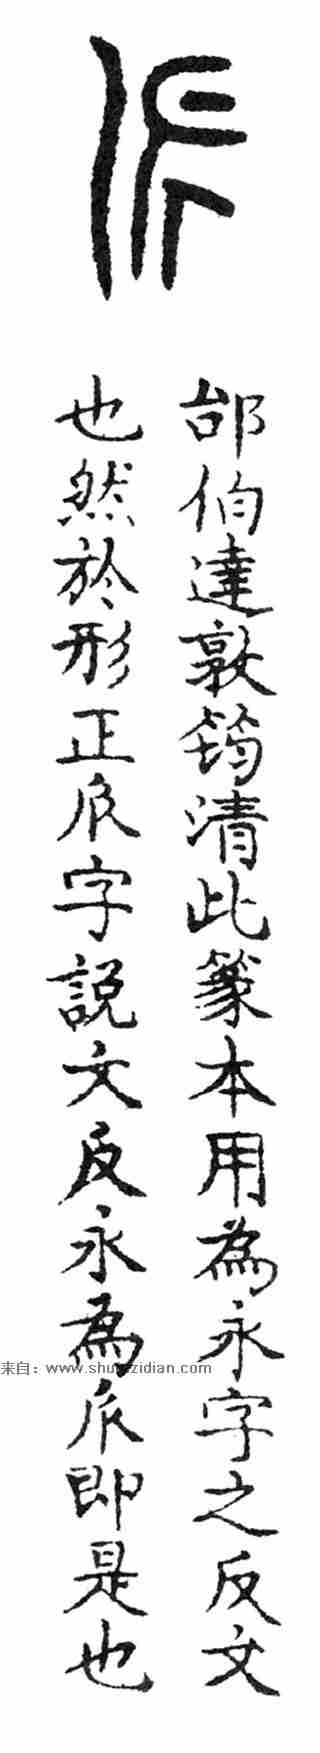 𠂢
邰伯達敦筠清此篆本用為永字之反文
也然於形正𠂢字說文反永為𠂢即是也
来自：www.shufazidian.com